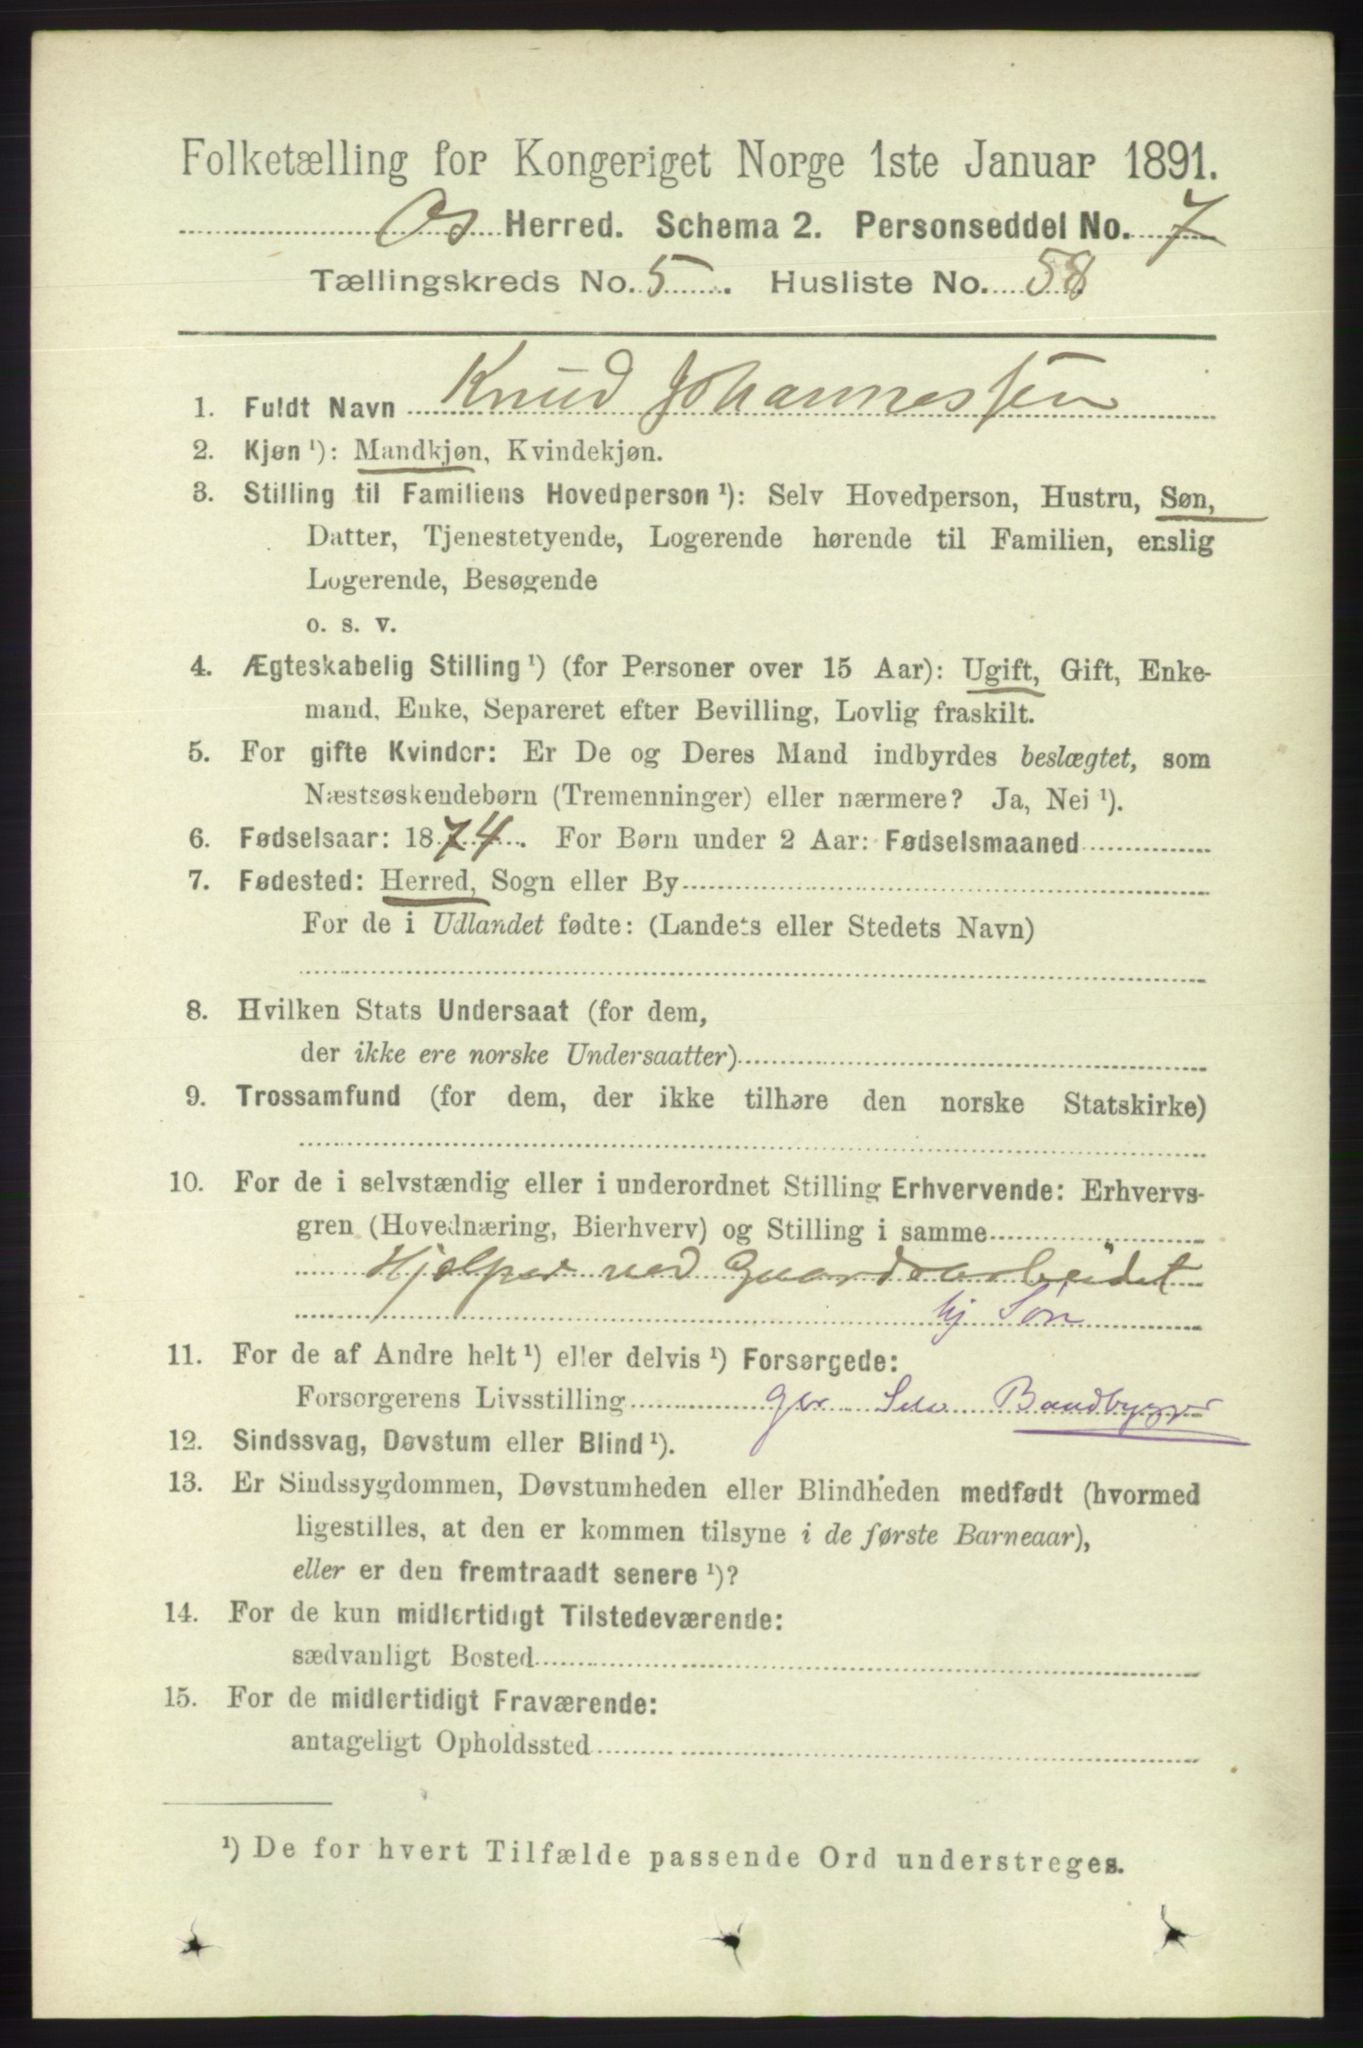 Folketælling for Kongeriget Norge 1ste Januar 1891.
Os Herred. Schema 2. Personseddel No. 7
Tællingskreds No. 5. Husliste No. 58
1. Fuldt Navn Knud Johannessen
2. Kjøn ¹): Mandkjøn, Kvindekjøn.
3. Stilling til Familiens Hovedperson ¹): Selv Hovedperson, Hustru, Søn,
Datter, Tjenestetyende, Logerende hørende til Familien, enslig
Logerende, Besøgende
o. s. v.
4. Ægteskabelig Stilling ¹) (for Personer over 15 Aar): Ugift, Gift, Enke-
mand, Enke, Separeret efter Bevilling, Lovlig fraskilt.
5. For gifte Kvinder: Er De og Deres Mand indbyrdes beslægtet, som
Næstsøskendebørn (Tremenninger) eller nærmere? Ja, Nei ¹).
6. Fødselsaar: 1874. For Børn under 2 Aar: Fødselsmaaned
7. Fødested: Herred, Sogn eller By
For de i Udlandet fødte: (Landets eller Stedets Navn)
8. Hvilken Stats Undersaat (for dem,
der ikke ere norske Undersaatter)
9. Trossamfund (for dem, der ikke tilhøre den norske Statskirke)
10. For de i selvstændig eller i underordnet Stilling Erhvervende: Erhvervs-
gren (Hovednæring, Bierhverv) og Stilling i samme
Hjelper ved Gaardsarbeidet
hj Søn
11. For de af Andre helt ¹) eller delvis ¹) Forsørgede:
Forsørgerens Livsstilling Gbr Selv Baadbygger
12. Sindssvag, Døvstum eller Blind ¹).
13. Er Sindssygdommen, Døvstumheden eller Blindheden medfødt (hvormed
ligestilles, at den er kommen tilsyne i de første Barneaar),
eller er den fremtraadt senere ¹)?
14. For de kun midlertidigt Tilstedeværende:
sædvanligt Bosted
15. For de midlertidigt Fraværende:
antageligt Opholdssted
¹) De for hvert Tilfælde passende Ord understreges.